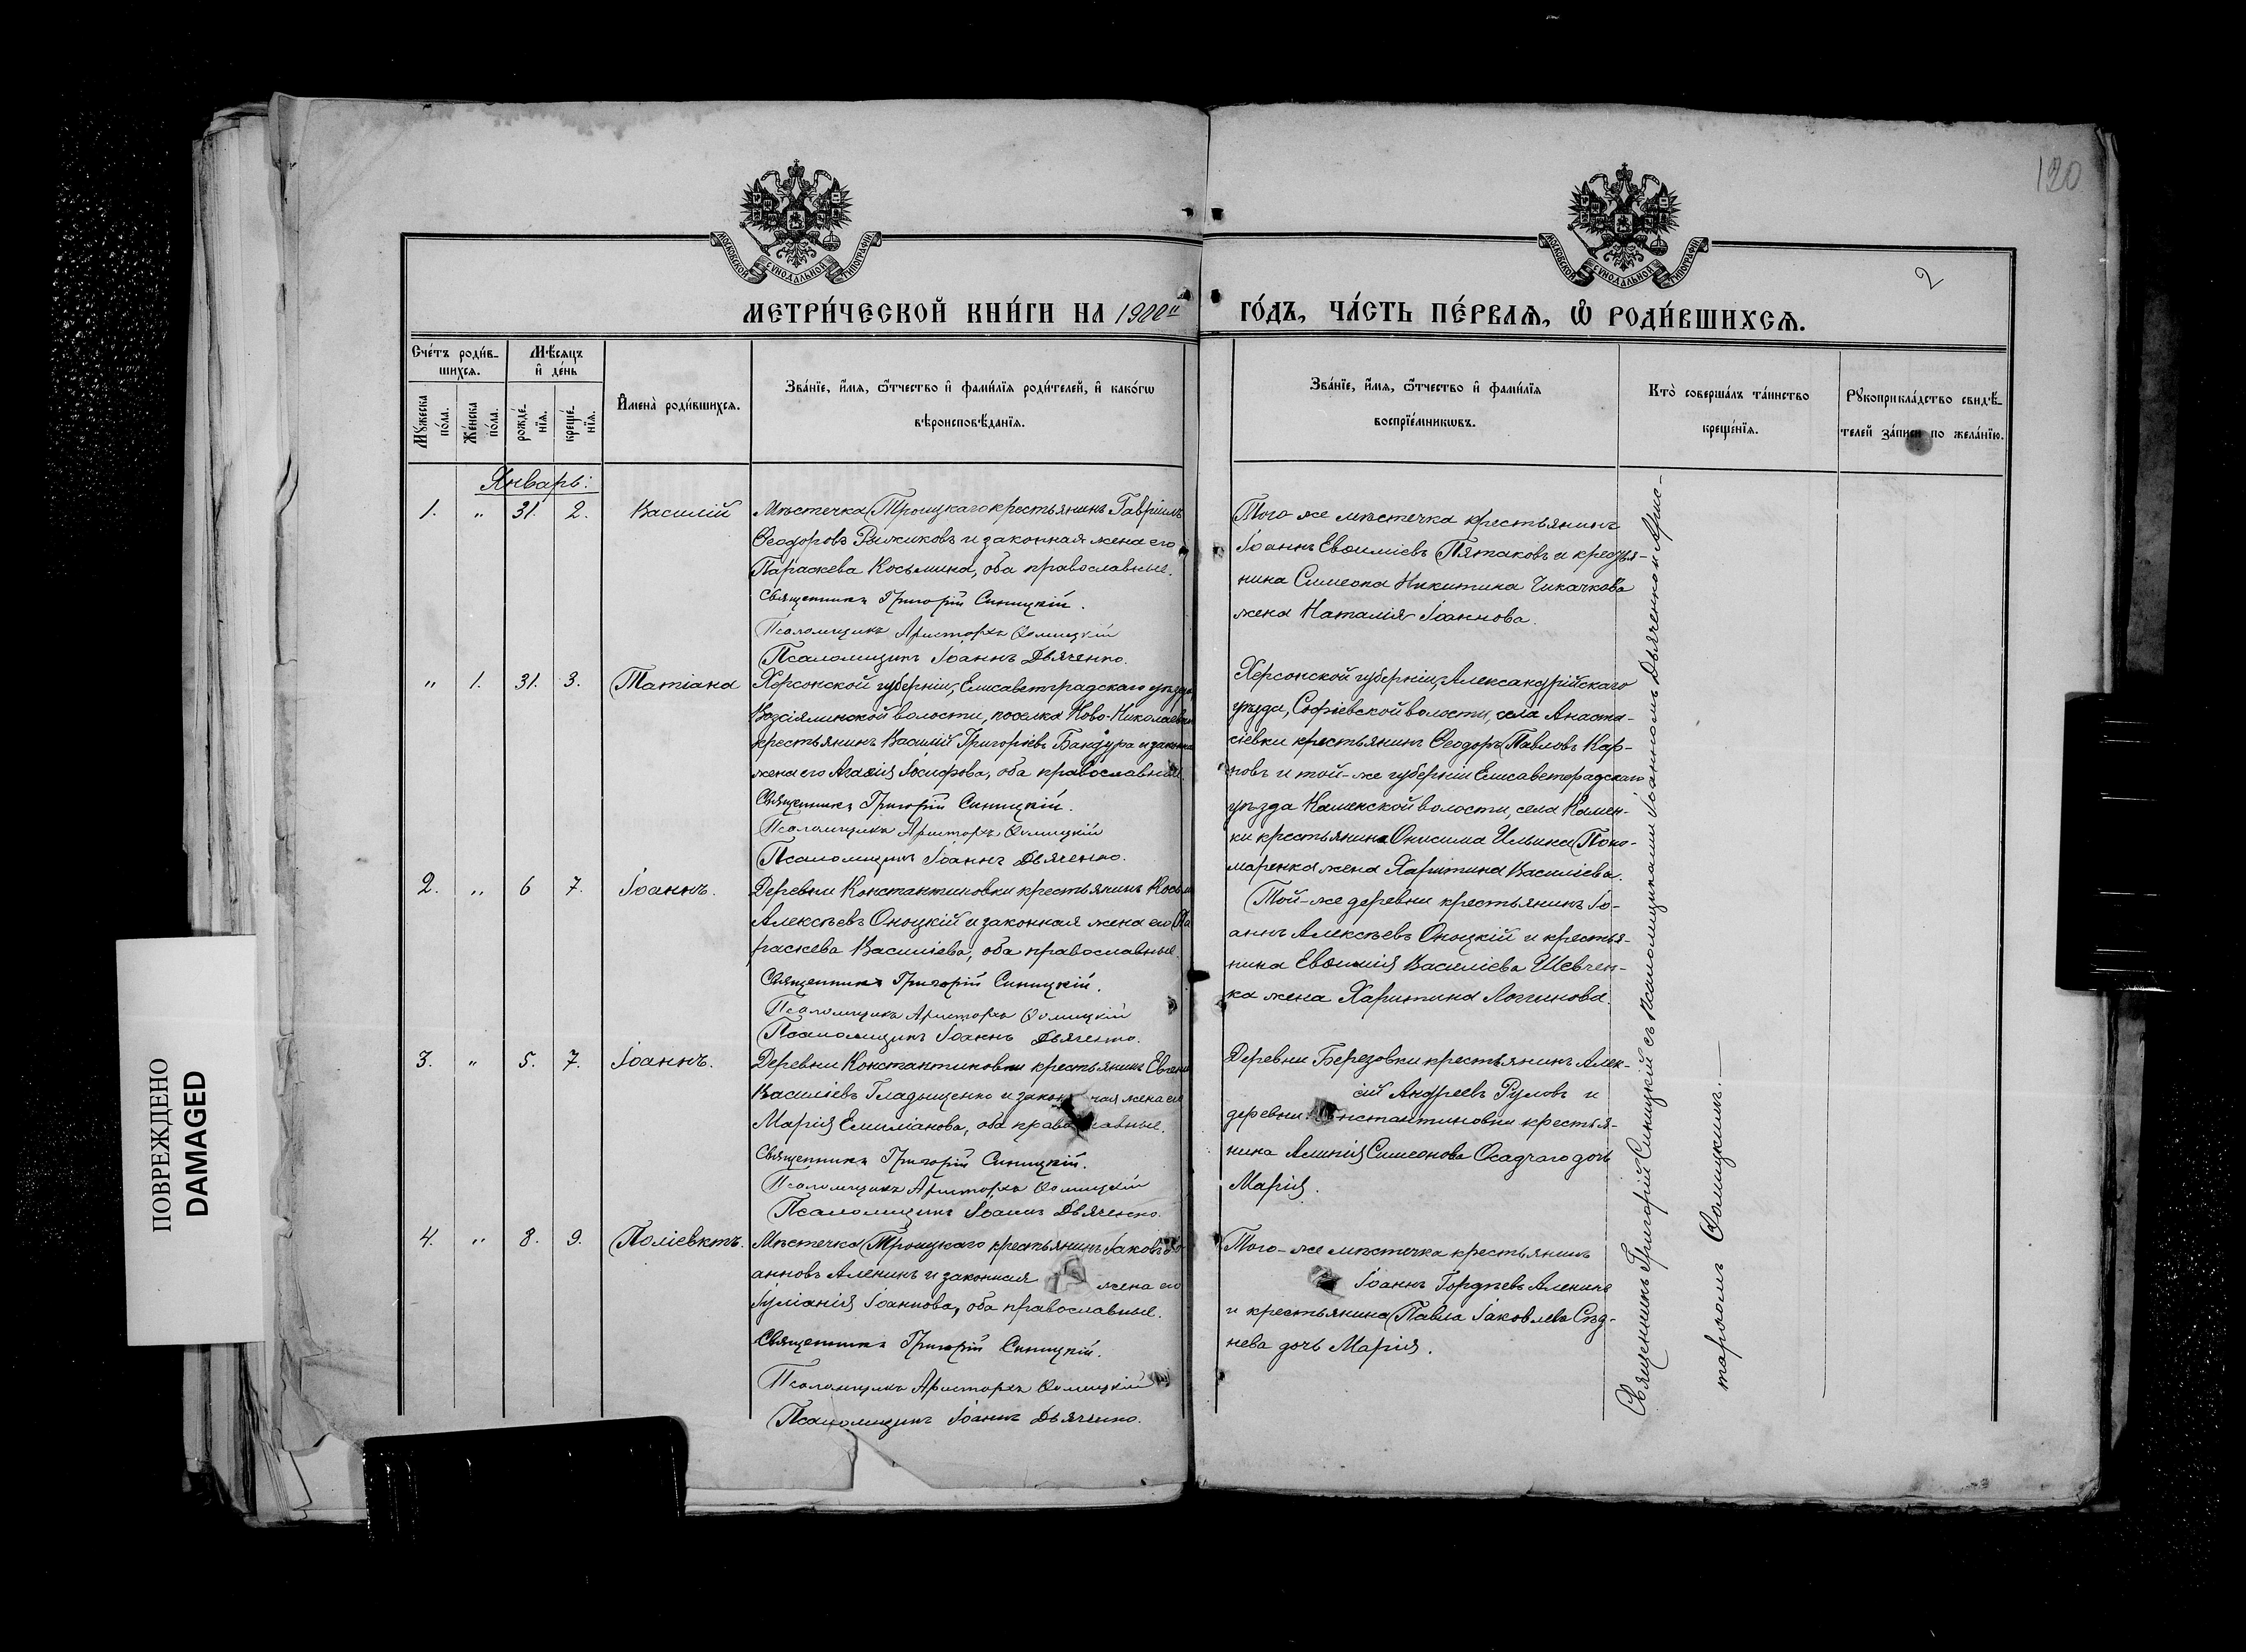 120
2
МОСКОВСКОЙ СѴНОДАЛЬНОЙ ТИПОГРАФІИ
МОСКОВСКОЙ СѴНОДАЛЬНОЙ ТИПОГРАФІИ
МЕТРИ́ЧЕСКОЙ КНИ́ГИ НА 1900й
ГО́ДЪ, ЧА́СТЬ ПЕ́РВАѦ, Ѡ РОДИ́ВШИХСѦ.
Сче́тъ роди́в-
шихсѧ.
Мѣ́сяцъ
и҆ де́нь
Мꙋ́жеска
по́ла.
Же́нска
по́ла.
рожде́-
нїѧ.
креще́-
нїѧ.
И҆мена̀ роди́вшихсѧ.
Зва́нїе, и҆́мѧ, ѻ҆́тчество и҆ фами́лїѧ роди́телей, и҆ како́гѡ
вѣроисповѣ́данїѧ.
Зва́нїе, и҆́мѧ, ѻ҆́тчество и҆ фами́лїѧ
воспрїе́мникѡвъ.
Кто̀ соверша́лъ та́инство
креще́нїѧ.
Рꙋкоприкла́дство свидѣ́-
телей за́писи по жела́нїю.
Январь:
1. " 31. 2. Василій
Мѣстечка Троицкаго крестьянинъ Гавріилъ
Ѳеодоровъ Рыжиковъ и законная жена его
Параскева Косьмина, оба православные.
Священникъ Григорій Синицкій.
Псаломщикъ Аристархъ Ѳомицкій
Псаломщикъ Іоаннъ Дьяченко.
Того же мѣстечка крестьянинъ
Іоаннъ Евѳиміевъ Пятаковъ и крестья-
нина Симеона Никитина Чикачкова
жена Наталія Іоаннова.
" 1. 31. 3. Татіана
Херсонской губерніи, Елисаветградскаго уѣзда,
волости, поселка Ново-Николаевки
крестьянинъ Василій Григоріевъ Бандура и законная
жена его Агафія Іосифова, оба православные.
Священникъ Григорій Синицкій.
Псаломщикъ Аристархъ Ѳомицкій
Псаломщикъ Іоаннъ Дьяченко.
Херсонской губерніи, Александрійскаго
уѣзда, Софіевской волости, села Анаста-
сіевки крестьянинъ Ѳеодоръ Павловъ Кар-
повъ и той-же губерніи Елисаветградскаго
уѣзда Каменской волости, села Камен-
ки крестьянина Онисима Ильина Поно-
маренка жена Харитина Василіева.
2. " 6 7. Іоаннъ.
Деревни Константиновки крестьянинъ Косьма
Алексѣевъ Оноцкій и законная жена его Па
раскева Василіева, оба православные.
Священникъ Григорій Синицкій.
Псаломщикъ Аристархъ Ѳомицкій
Псаломщикъ Іоаннъ Дьяченко.
Той-же деревни крестьянинъ Іо-
аннъ Алексѣевъ Оноцкій и крестья-
нина Евѳимія Василіева Шевчен-
ка жена Харитина Логгинова.
3. " 5. 7. Іоаннъ.
Деревни Константиновки крестьянинъ Евгеній
Василіевъ Гладыщенко и законная жена его
Марія Емиліанова, оба православные.
Священникъ Григорій Синицкій.
Псаломщикъ Аристархъ Ѳомицкій
Псаломщикъ Іоаннъ Дьяченко.
Деревни Березовки крестьянинъ Алек-
сій Андреевъ Руловъ и
деревни Константиновки крестья-
нина Симеонова Осадчаго дочь
Марія.
4. " 8. 9. Поліевктъ.
Мѣстечка Троицкаго крестьянинъ Іаковъ Іо
анновъ Аленинъ и законная жена его
Іуліанія Іоаннова, оба православные.
Священникъ Григорій Синицкій.
Псаломщикъ Аристархъ Ѳомицкій
Псаломщикъ Іоаннъ Дьяченко.
Того-же мѣстечка крестьянинъ
Іоаннъ Гордѣевъ Аленинъ
и крестьянина Павла Іаковлева Сѣд-
нева дочь Марія.
Священникъ Григорій Синицкій съ псаломщиками Іоанномъ Дьяченко и Арис-
тархомъ Ѳомицкимъ.—
ПОВРЕЖДЕНО
DAMAGED